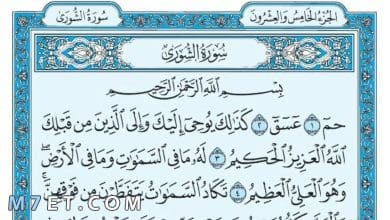 الجُزْءُ الخَامِسُ وَالعِشْرُونَ
سُورَةُ الشُّورَىٰ
سُورَةُ الشُّورَىٰ
بِسْمِ اللَّهِ الرَّحْمَٰنِ الرَّحِيمِ
حمٓ ١ عٓسٓقٓ ٢ كَذَٰلِكَ يُوحِىٓ إِلَيْكَ وَإِلَى الَّذِينَ مِن قَبْلِكَ
اللَّهُ الْعَزِيزُ الْحَكِيمُ ٣ لَهُۥ مَا فِى السَّمَٰوَٰتِ وَمَا فِى الْأَرْضِ ۖ
وَهُوَ الْعَلِىُّ الْعَظِيمُ ٤ تَكَادُ السَّمَٰوَٰتُ يَتَفَطَّرْنَ مِن فَوْقِهِنَّ ۚ
M7ET.COM